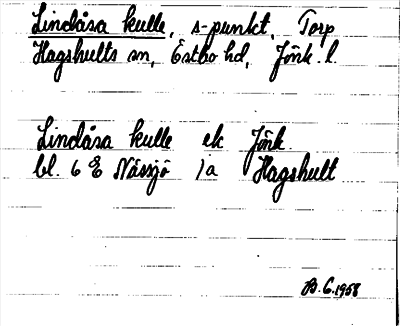 Lindåsa kulle, s-punkt, Torp
Hagshults sn, Östbo hd, Jönk. l.
Lindåsa kulle ek Jönk
bl. 6 E Nässjö 1a Hagshult
B.G. 1958